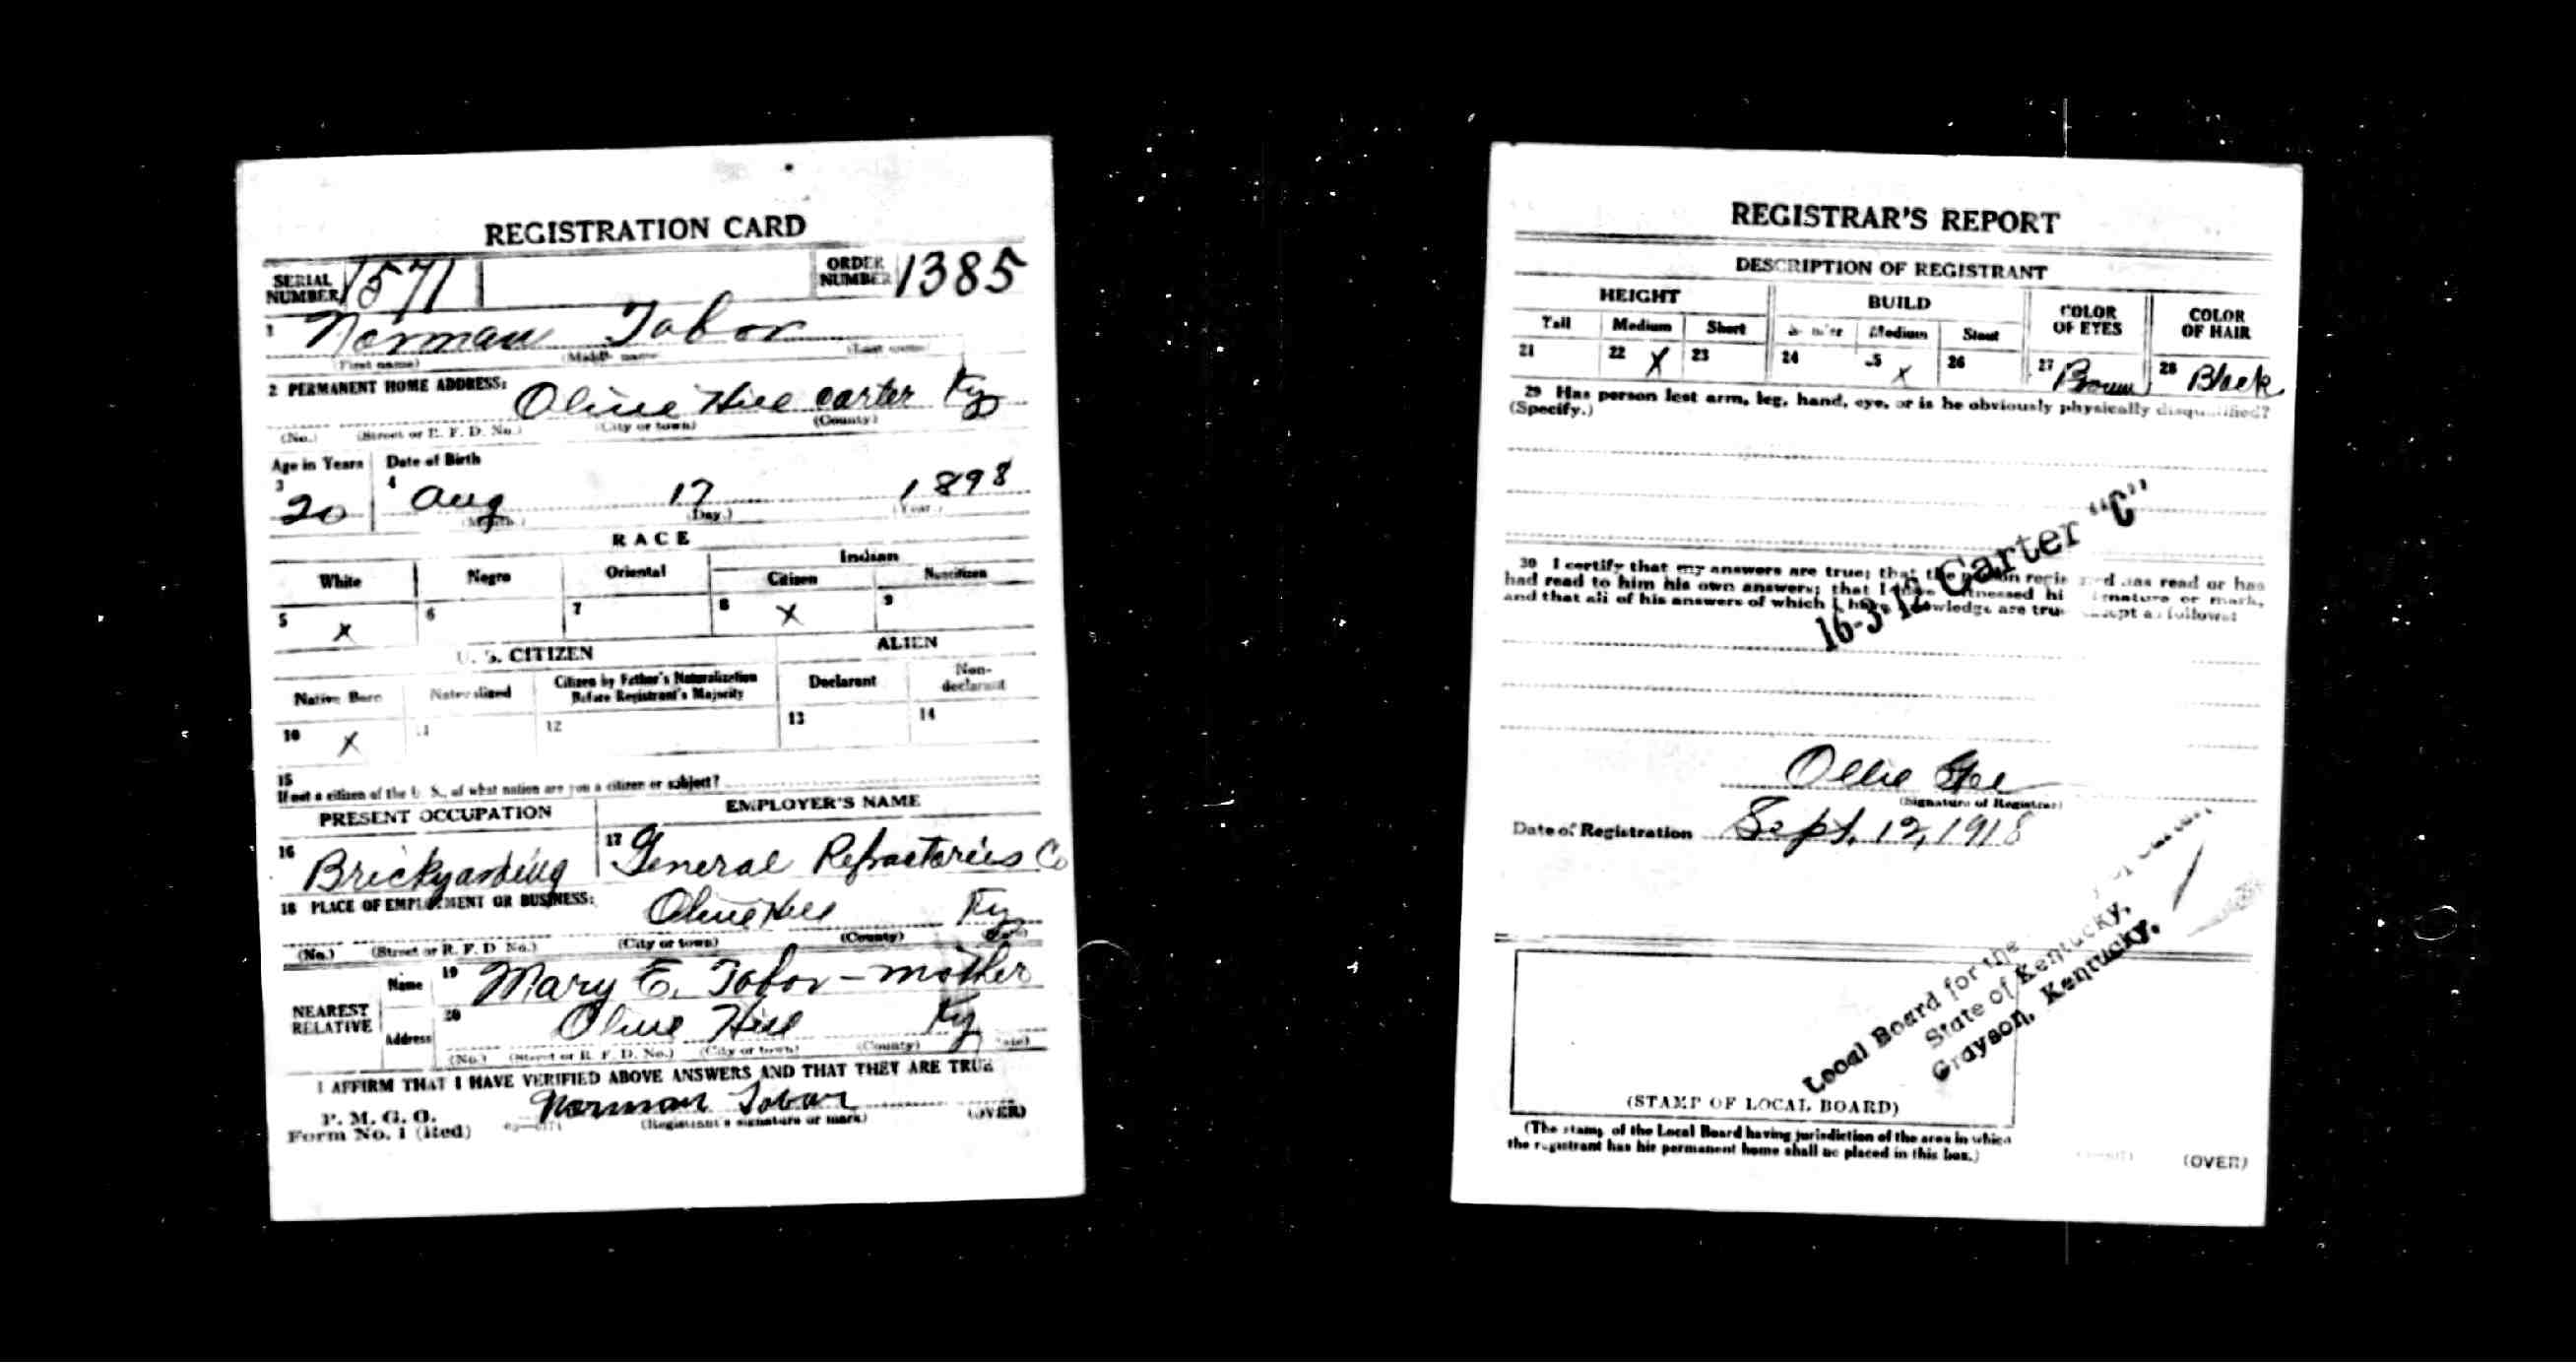 REGISTRATION CARD
SERIAL NUMBER 1571 ORDER NUMBER 1385
1 Norman Tabor
(First name) (Middle name) (Last name)
2 PERMANENT HOME ADDRESS:
Olive Hill Carter Ky
(No.) (Street or R. F. D. No.) (City or town) (County)
Age in Years Date of Birth
3 20 4 Aug 17 1898
(Month.) (Day.) (Year.)
RACE
White Negro Oriental Indian
Citizen Noncitizen
5 X 6 7 8 X 9
U. S. CITIZEN ALIEN
Native Born Naturalized Citizen by Father's Naturalization Before Registrant's Majority Declarant Non-declarant
10 X 11 12 13 14
15
If not a citizen of the U. S., of what nation are you a citizen or subject?
PRESENT OCCUPATION EMPLOYER'S NAME
16 Brickyarding 17 General Refractories Co
18 PLACE OF EMPLOYMENT OR BUSINESS:
Olive Hill Ky
(No.) (Street or R. F. D. No.) (City or town) (County)
NEAREST RELATIVE Name 19 Mary E. Tabor - mother
Address 20 Olive Hill Ky
(No.) (Street or R. F. D. No.) (City or town) (County) (State)
I AFFIRM THAT I HAVE VERIFIED ABOVE ANSWERS AND THAT THEY ARE TRUE
P. M. G. O.
Form No. 1 (Red) Norman Tabor
(Registrant's signature or mark) (OVER)
REGISTRAR'S REPORT
DESCRIPTION OF REGISTRANT
HEIGHT BUILD COLOR OF EYES COLOR OF HAIR
Tall Medium Short Slender Medium Stout
21 22 X 23 24 25 X 26 27 Brown 28 Black
29 Has person lost arm, leg, hand, eye, or is he obviously physically disqualified?
(Specify.)
16-3-12 Carter "C"
30 I certify that my answers are true; that the person registered has read or has
had read to him his own answers; that I have witnessed his signature or mark,
and that all of his answers of which I have knowledge are true, except as follows:
Ollie Gee
(Signature of Registrar)
Date of Registration Sept. 12, 1918
Local Board for the
State of Kentucky,
Grayson, Kentucky.
(STAMP OF LOCAL BOARD)
(The stamp of the Local Board having jurisdiction of the area in which
the registrant has his permanent home shall be placed in this box.)
(OVER)